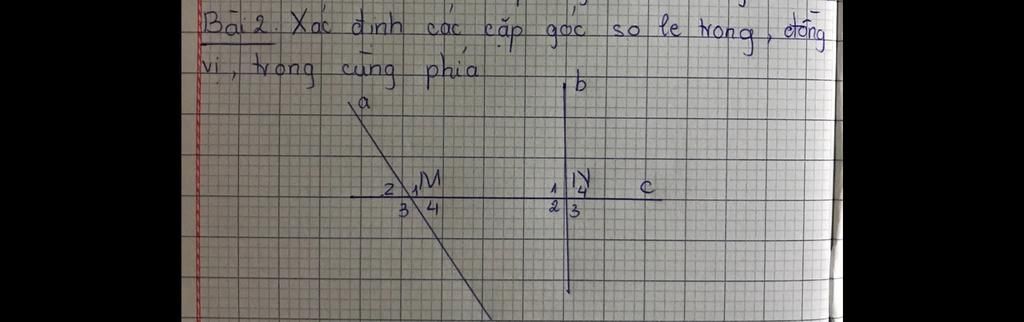 Bài 2. Xác định các cặp góc so le trong, đồng
vị, trong cùng phía
b
a
2 1 M 1 N 4 c
3 4 2 3